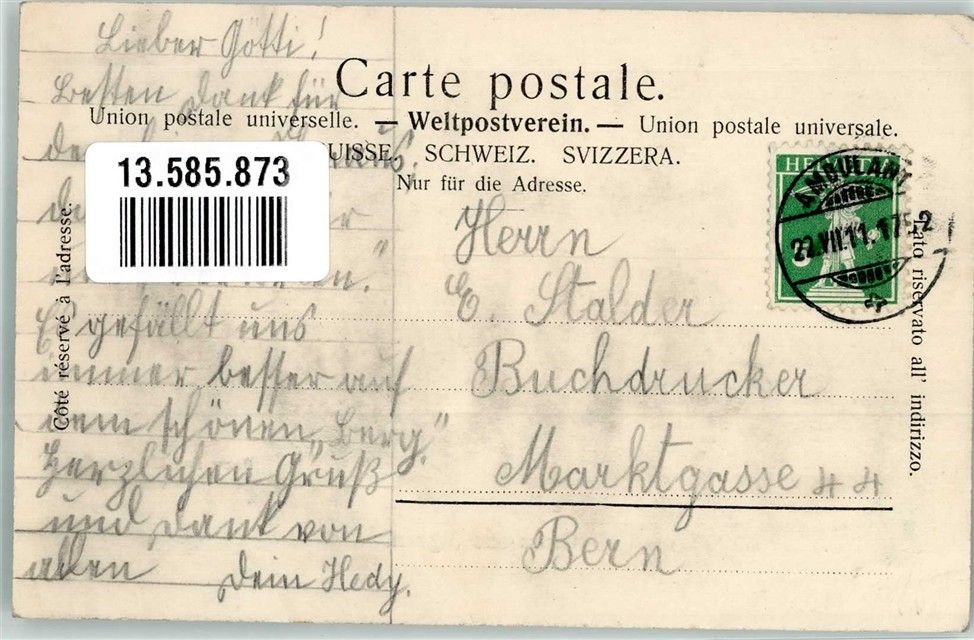 Lieber Götti!
Besten Dank für
13.585.873
Es gefällt uns
immer besser auf
dem schönen „Berg".
Herzlichen Gruß
und Dank von
allen Dein Hedy.
Carte postale.
Union postale universelle. — Weltpostverein. — Union postale universale.
UISSE. SCHWEIZ. SVIZZERA.
Nur für die Adresse.
Côté réservé à l'adresse.
Herrn
E. Stalder
Buchdrucker
Marktgasse 44
Bern
HELVETIA
AMBULANT
22.VII.11.
riservato all' indirizzo.